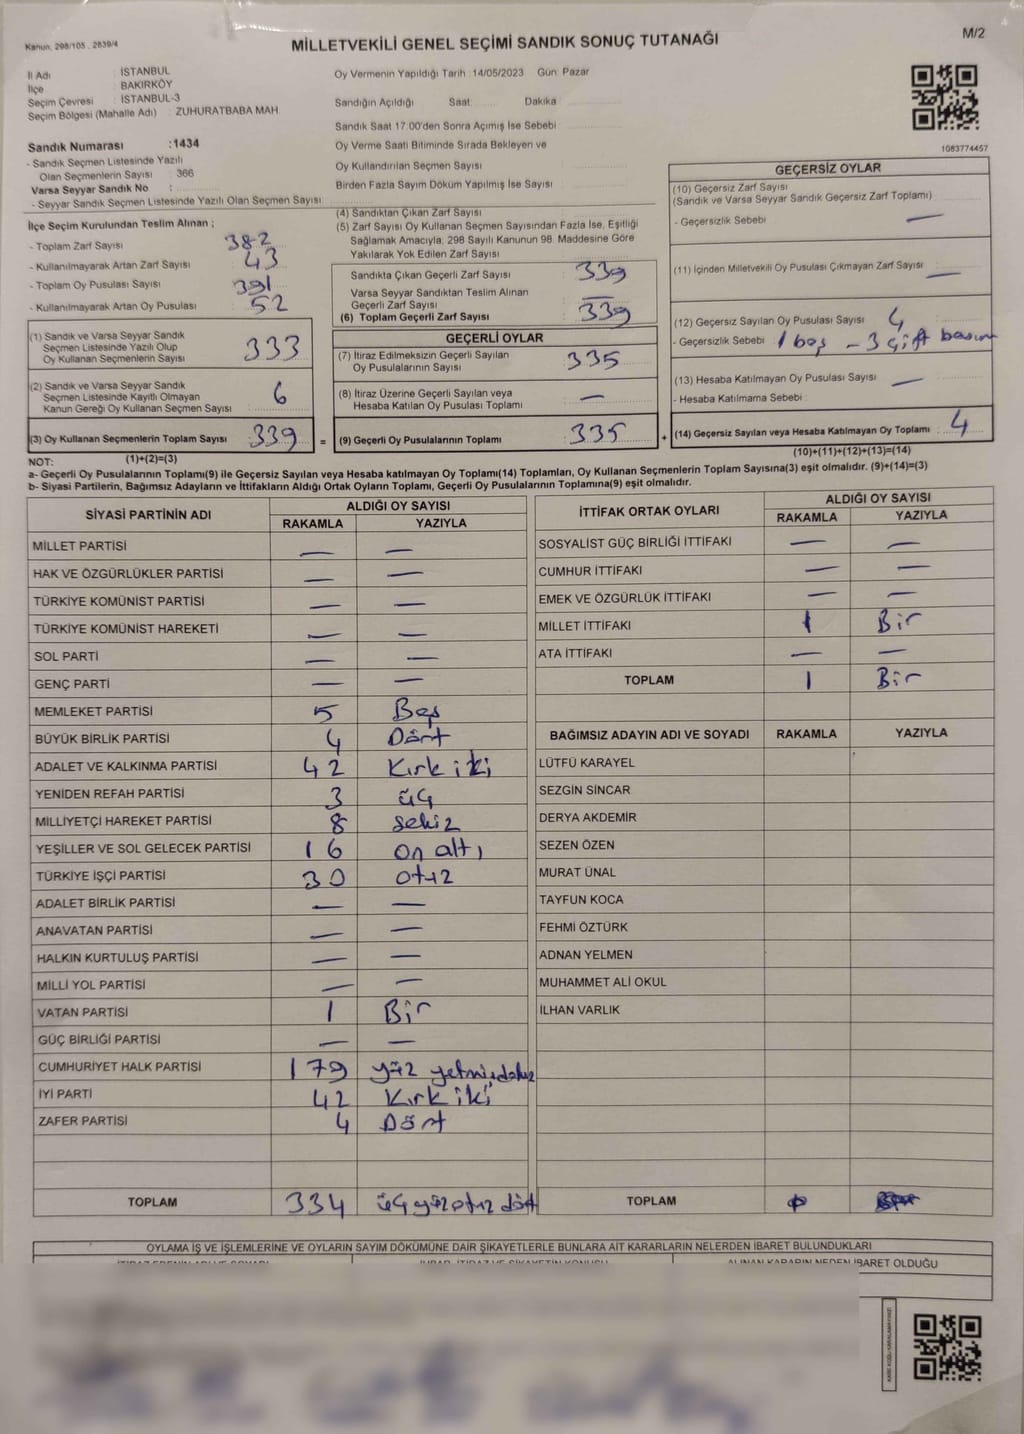 Kanun, 298/105 . 2839/4
MİLLETVEKİLİ GENEL SEÇİMİ SANDIK SONUÇ TUTANAĞI
M/2
İl Adı : İSTANBUL
İlçe : BAKIRKÖY
Seçim Çevresi : İSTANBUL-3
Seçim Bölgesi (Mahalle Adı) : ZUHURATBABA MAH
Sandık Numarası :1434
- Sandık Seçmen Listesinde Yazılı
Olan Seçmenlerin Sayısı : 366
Varsa Seyyar Sandık No :
- Seyyar Sandık Seçmen Listesinde Yazılı Olan Seçmen Sayısı:
Oy Vermenin Yapıldığı Tarih :14/05/2023 Gün: Pazar
Sandığın Açıldığı Saat: Dakika
Sandık Saat 17:00'den Sonra Açımış İse Sebebi
Oy Verme Saati Bitiminde Sırada Bekleyen ve
Oy Kullandırılan Seçmen Sayısı
Birden Fazla Sayım Döküm Yapılmış İse Sayısı
1083774457
İlçe Seçim Kurulundan Teslim Alınan ;
- Toplam Zarf Sayısı 382
- Kullanılmayarak Artan Zarf Sayısı 43
- Toplam Oy Pusulası Sayısı 391
- Kullanılmayarak Artan Oy Pusulası 52
(1) Sandık ve Varsa Seyyar Sandık
Seçmen Listesinde Yazılı Olup
Oy Kullanan Seçmenlerin Sayısı 333
(2) Sandık ve Varsa Seyyar Sandık
Seçmen Listesinde Kayıtlı Olmayan
Kanun Gereği Oy Kullanan Seçmen Sayısı 6
(3) Oy Kullanan Seçmenlerin Toplam Sayısı 339 =
(1)+(2)=(3)
(4) Sandıktan Çıkan Zarf Sayısı
(5) Zarf Sayısı Oy Kullanan Seçmen Sayısından Fazla İse, Eşitliği
Sağlamak Amacıyla; 298 Sayılı Kanunun 98. Maddesine Göre
Yakılarak Yok Edilen Zarf Sayısı
Sandıkta Çıkan Geçerli Zarf Sayısı 339
Varsa Seyyar Sandıktan Teslim Alınan
Geçerli Zarf Sayısı —
(6) Toplam Geçerli Zarf Sayısı 339
GEÇERLİ OYLAR
(7) İtiraz Edilmeksizin Geçerli Sayılan
Oy Pusulalarının Sayısı 335
(8) İtiraz Üzerine Geçerli Sayılan veya
Hesaba Katılan Oy Pusulası Toplamı —
(9) Geçerli Oy Pusulalarının Toplamı 335 +
GEÇERSİZ OYLAR
(10) Geçersiz Zarf Sayısı
(Sandık ve Varsa Seyyar Sandık Geçersiz Zarf Toplamı)
- Geçersizlik Sebebi —
(11) İçinden Milletvekili Oy Pusulası Çıkmayan Zarf Sayısı —
(12) Geçersiz Sayılan Oy Pusulası Sayısı 4
- Geçersizlik Sebebi 1 boş - 3 çift basım
(13) Hesaba Katılmayan Oy Pusulası Sayısı —
- Hesaba Katılmama Sebebi
(14) Geçersiz Sayılan veya Hesaba Katılmayan Oy Toplamı 4
(10)+(11)+(12)+(13)=(14)
NOT:
a- Geçerli Oy Pusulalarının Toplamı(9) ile Geçersiz Sayılan veya Hesaba katılmayan Oy Toplamı(14) Toplamları, Oy Kullanan Seçmenlerin Toplam Sayısına(3) eşit olmalıdır. (9)+(14)=(3)
b- Siyasi Partilerin, Bağımsız Adayların ve İttifakların Aldığı Ortak Oyların Toplamı, Geçerli Oy Pusulalarının Toplamına(9) eşit olmalıdır.
SİYASİ PARTİNİN ADI ALDIĞI OY SAYISI
RAKAMLA YAZIYLA
MİLLET PARTİSİ — —
HAK VE ÖZGÜRLÜKLER PARTİSİ — —
TÜRKİYE KOMÜNİST PARTİSİ — —
TÜRKİYE KOMÜNİST HAREKETİ — —
SOL PARTİ — —
GENÇ PARTİ — —
MEMLEKET PARTİSİ 5 Beş
BÜYÜK BİRLİK PARTİSİ 4 Dört
ADALET VE KALKINMA PARTİSİ 42 Kırk iki
YENİDEN REFAH PARTİSİ 3 üç
MİLLİYETÇİ HAREKET PARTİSİ 8 sekiz
YEŞİLLER VE SOL GELECEK PARTİSİ 16 on altı
TÜRKİYE İŞÇİ PARTİSİ 30 otuz
ADALET BİRLİK PARTİSİ — —
ANAVATAN PARTİSİ — —
HALKIN KURTULUŞ PARTİSİ — —
MİLLİ YOL PARTİSİ — —
VATAN PARTİSİ 1 Bir
GÜÇ BİRLİĞİ PARTİSİ — —
CUMHURİYET HALK PARTİSİ 179 yüz yetmişdokuz
İYİ PARTİ 42 Kırk iki
ZAFER PARTİSİ 4 Dört
TOPLAM 334 üç yüz otuz dört
İTTİFAK ORTAK OYLARI ALDIĞI OY SAYISI
RAKAMLA YAZIYLA
SOSYALİST GÜÇ BİRLİĞİ İTTİFAKI — —
CUMHUR İTTİFAKI — —
EMEK VE ÖZGÜRLÜK İTTİFAKI — —
MİLLET İTTİFAKI 1 Bir
ATA İTTİFAKI — —
TOPLAM 1 Bir
BAĞIMSIZ ADAYIN ADI VE SOYADI RAKAMLA YAZIYLA
LÜTFÜ KARAYEL
SEZGİN SİNCAR
DERYA AKDEMİR
SEZEN ÖZEN
MURAT ÜNAL
TAYFUN KOCA
FEHMİ ÖZTÜRK
ADNAN YELMEN
MUHAMMET ALİ OKUL
İLHAN VARLIK
TOPLAM
OYLAMA İŞ VE İŞLEMLERİNE VE OYLARIN SAYIM DÖKÜMÜNE DAİR ŞİKAYETLERLE BUNLARA AİT KARARLARIN NELERDEN İBARET BULUNDUKLARI
ALINAN KARARIN NEDEN İBARET OLDUĞU